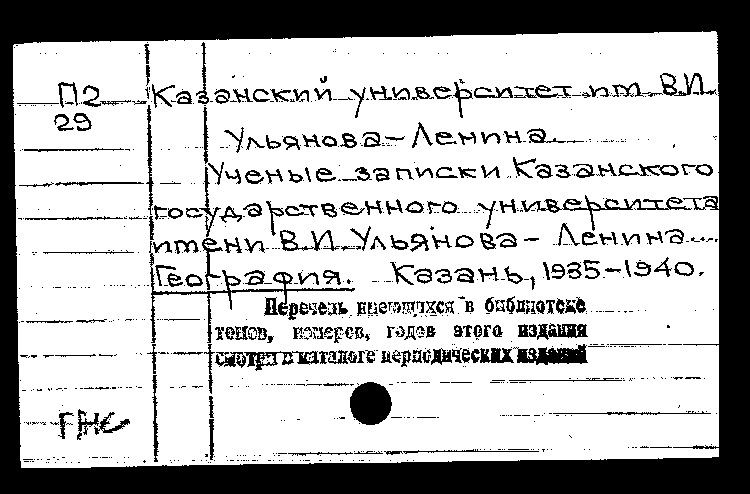 П2 Казанский университет им. В.И.
29
Ульянова-Ленина.
Ученые записки Казанского
государственного университета
имени В.И. Ульянова-Ленина...
География. Казань, 1935-1940.
Перечень имеющихся в библиотеке
томов, номеров, годов этого издания
смотри в каталоге периодических изданий